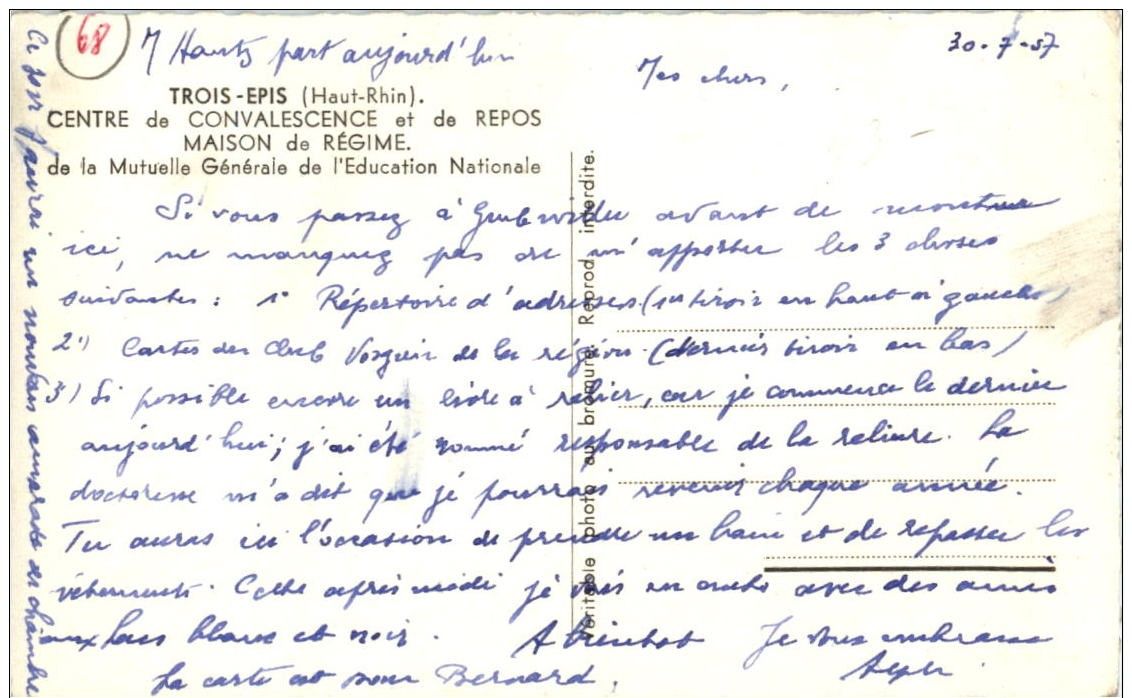 68
M Hantz part aujourd'hui
30-7-57
Mes chers,
TROIS-EPIS (Haut-Rhin).
CENTRE de CONVALESCENCE et de REPOS
MAISON de RÉGIME.
de la Mutuelle Générale de l'Education Nationale
Si vous passez à avant de monter
ici, ne manquez pas de m'apporter les 3 choses
suivantes : 1° Répertoire d'adresses (1er tiroir en haut à gauche)
2°) Cartes du Club Vosgien de la région (dernier tiroir en bas)
3) Si possible encore un livre à relier, car je commence le dernier
aujourd'hui; j'ai été nommé responsable de la reliure. La
doctoresse m'a dit que je pourrais revenir chaque année.
Tu auras ici l'occasion de prendre un bain et de repasser les
vêtements. Cette après midi je vais en auto avec des amis
aux lacs blanc et noir. A bientôt Je vous embrasse
La carte est pour Bernard.
Ce soir j'aurai un nouveau camarade de chambre
Véritable photo au bromure. Reprod interdite.